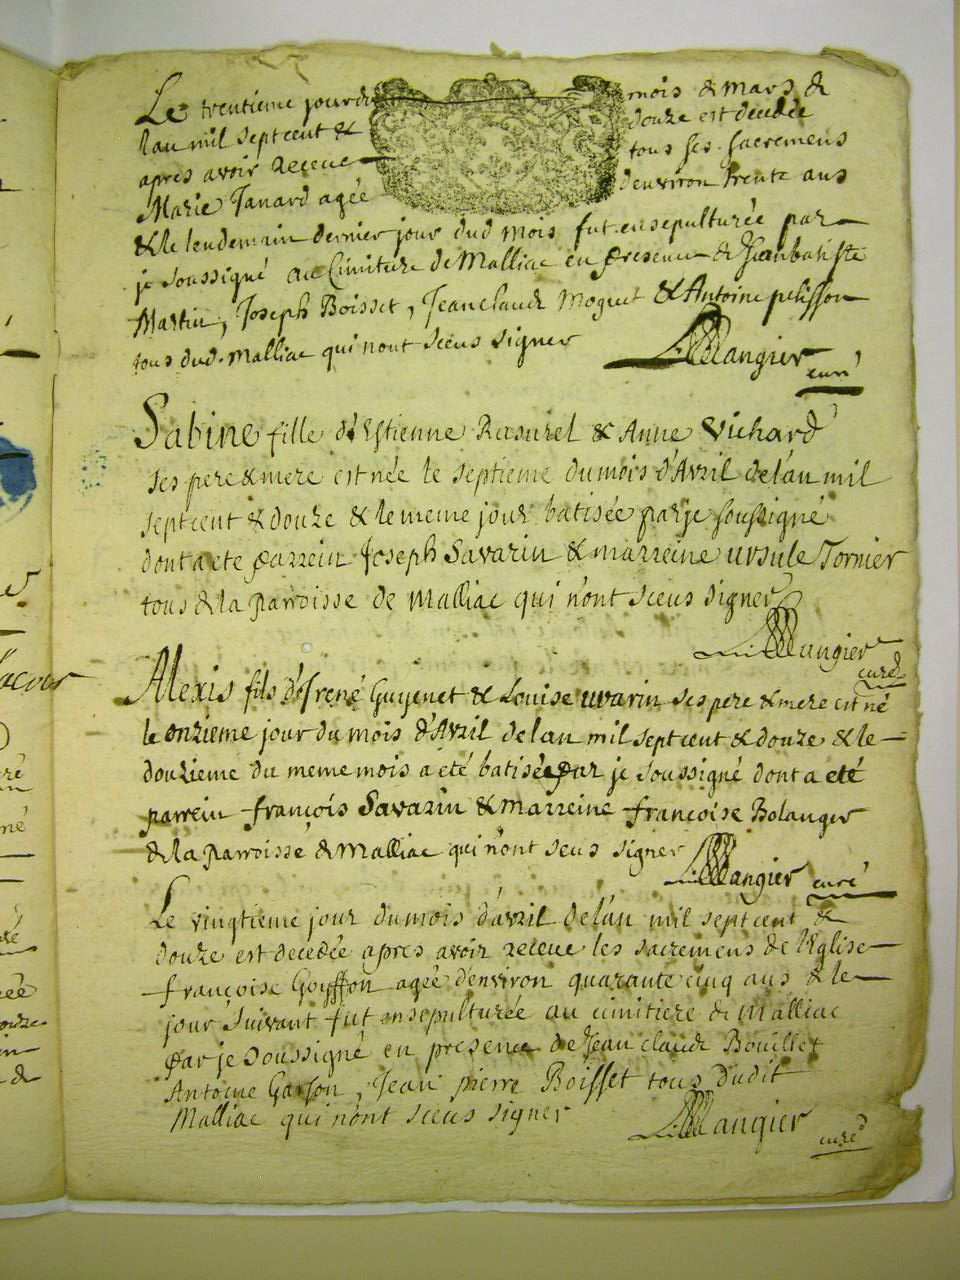 Le trentieme jour du mois de mars de
lan mil septcent & douze est decedée
apres avoir receue tous ses sacremens
Marie Janard agée d'environ trente ans
& le lendemain dernier jour dud mois fut ensepulturée par
je soussigné au Cimitiere de Malliac en presence de Jeanbatiste
Martin, Joseph Boisset, Jeanclaude Moguet & Antoine pelisson
tous dud. Malliac qui nont sceus signer
curé
Sabine fille d'Estienne Rasurel & Anne Vichard
ses pere & mere est née le septieme du mois d'Avril de lan mil
septcent & douze & le meme jour batisée par je soussigné
dont a ete parrein Joseph Savarin & marreine ursule Tornier
tous de la parroisse de Malliac qui n'ont sceus signer
curé
Alexis fils d'Irené Guyenet & Louise uvarin ses pere & mere est né
le onzieme jour du mois d'Avril de lan mil septcent & douze & le
douzieme du meme mois a eté batisée par je soussigné dont a eté
parrein françois Savarin & marreine françoise Bolanger
de la parroisse de Malliac qui n'ont seus signer
curé
Le vingtieme jour du mois d'avril de l'an mil septcent &
douze est decedée apres avoir receue les sacremens de l'Eglise
françoise Goyffon agée d'environ quarante cinq ans & le
jour suivant fut ensepulturée au cimitiere de Malliac
par je soussigné en presence de Jean claude Bouillet
Antoine , Jean pierre Boisset tous dudit
Malliac qui n'ont sceus signer
curé